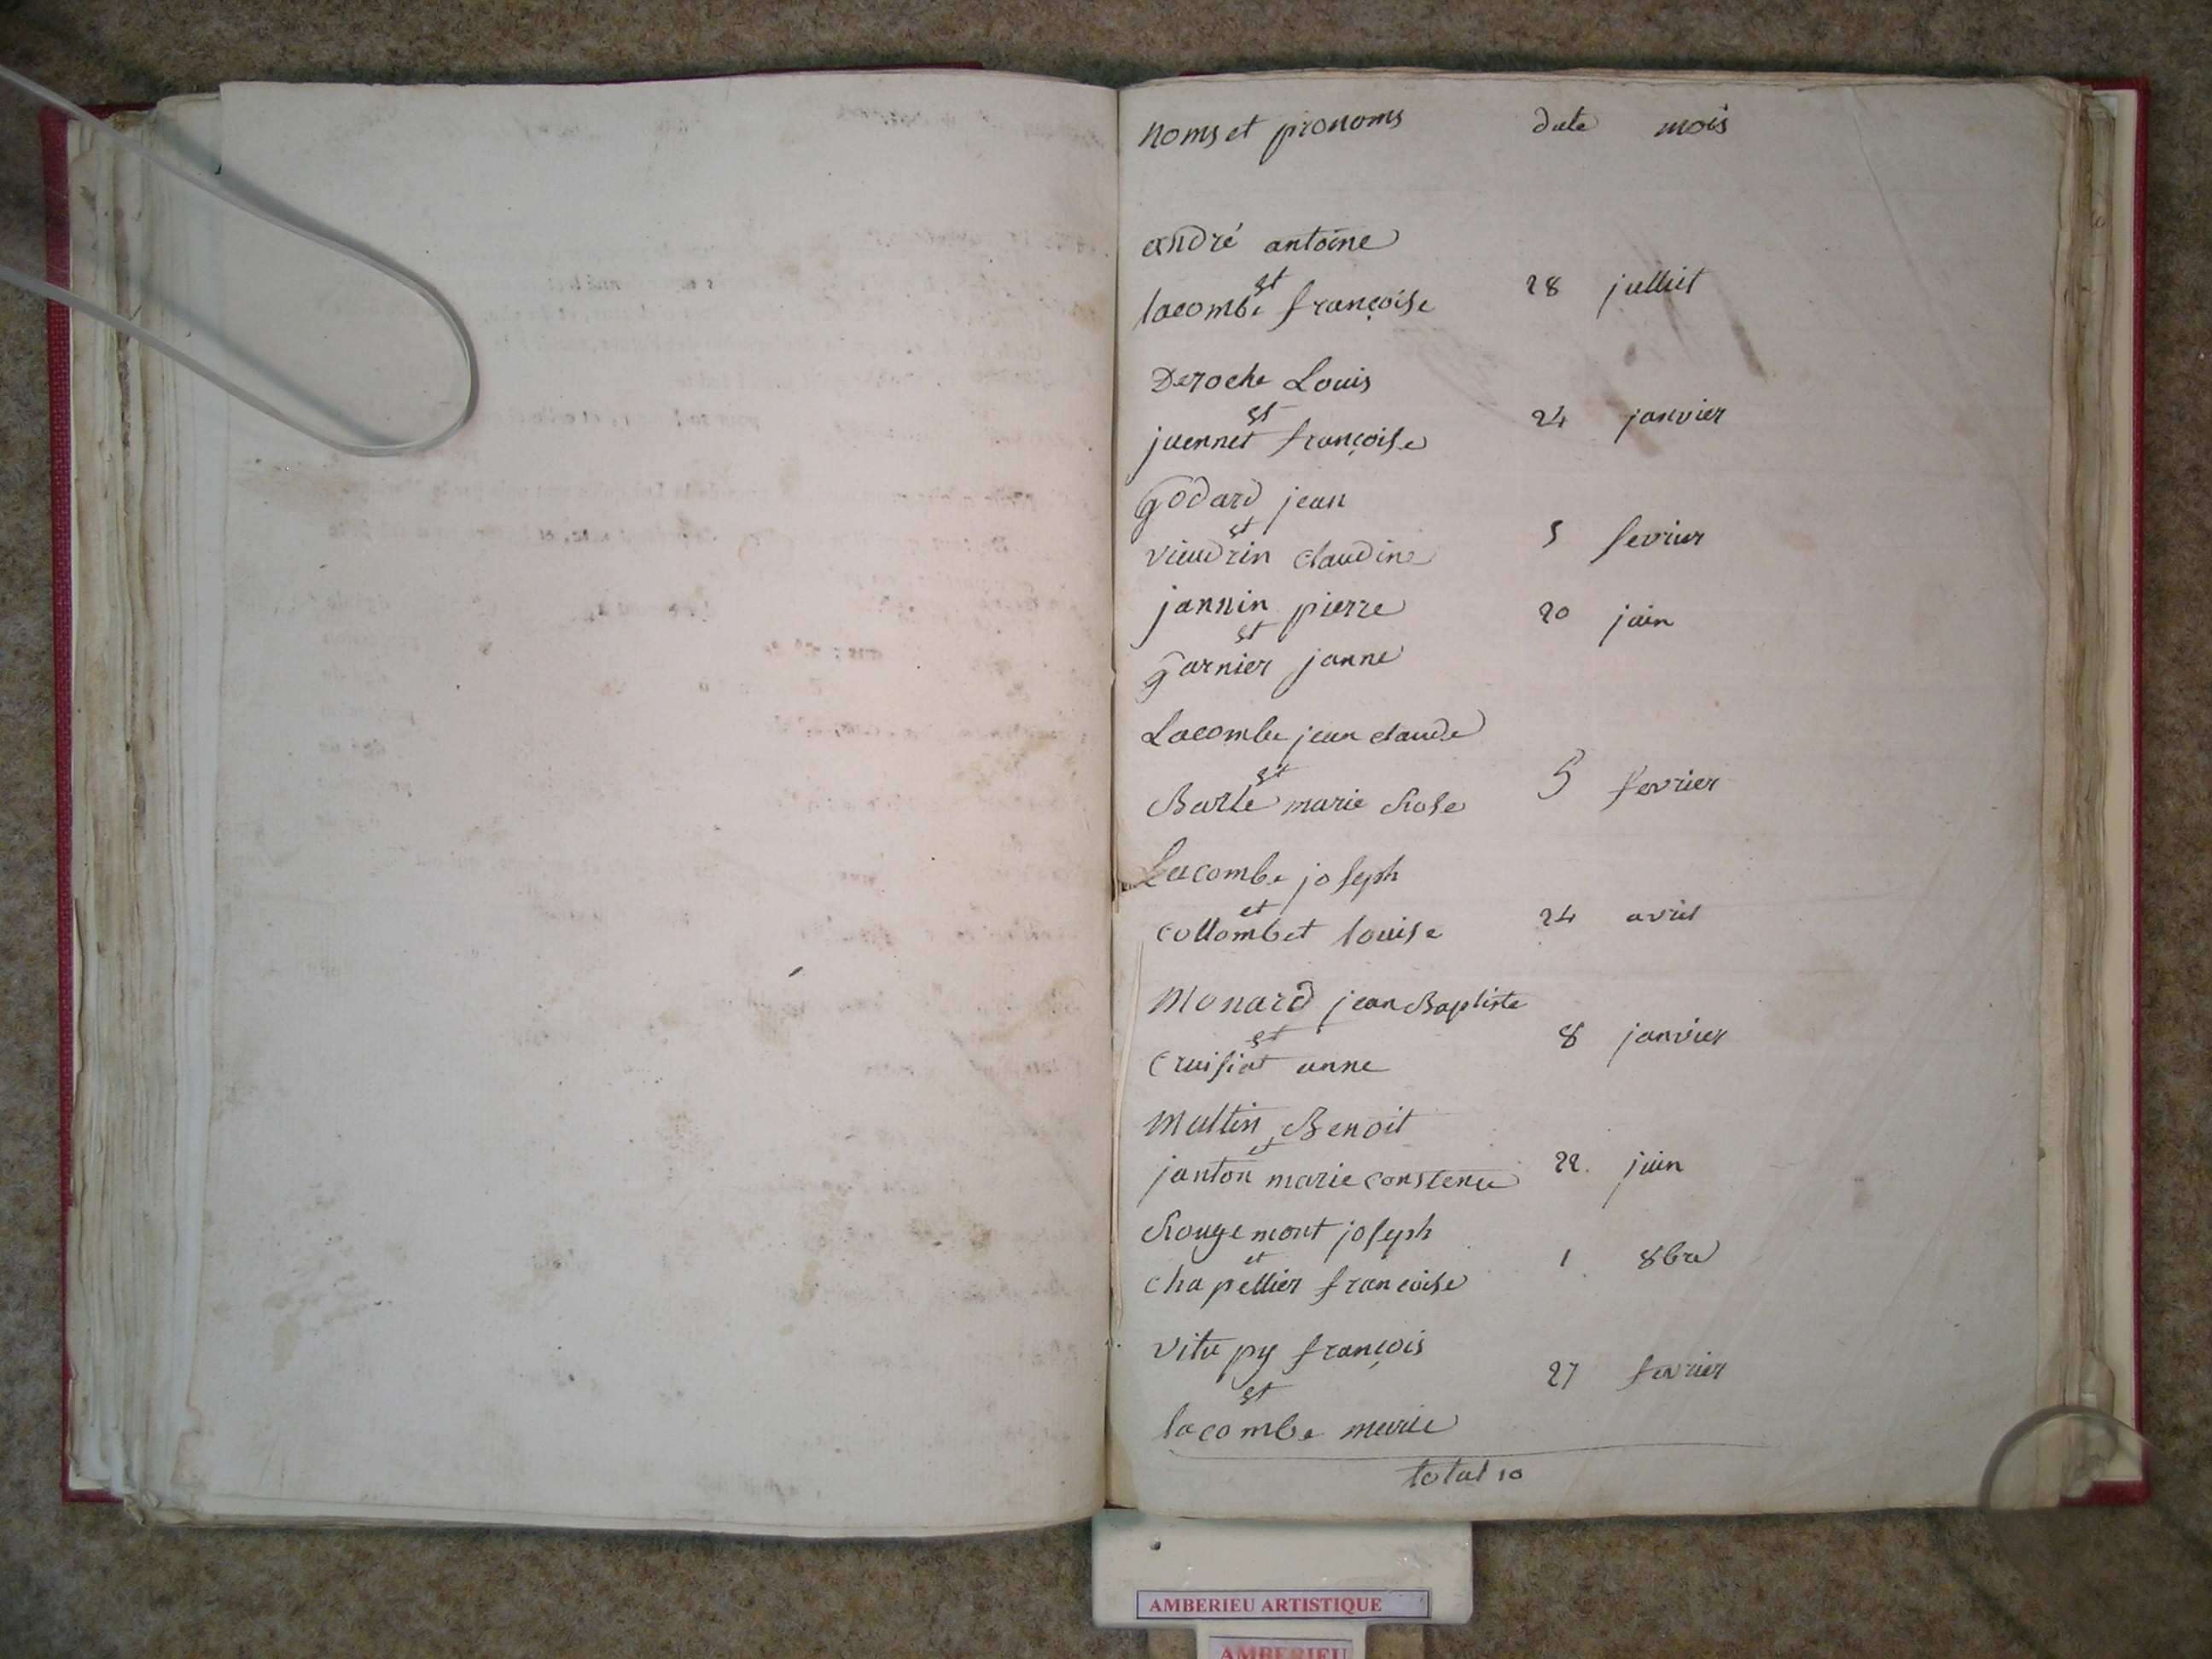 noms et pronoms date mois
andré antoine
et
lacombe françoise 28 julliet
Deroche Louis
et
juennet françoise 24 janvier
godard jean
et
viaudrin claudine 5 fevrier
jannin pierre 20 juin
et
garnier janne
Lacombe jean claude
et
marie Rose 5 fevrier
Lacombe joseph
et
collombet louise 24 avril
Monard jean Baptiste
et
Cruisiat anne 8 janvier
Mallin Benoit
et
janton marie constence 22. juin
Rougemont joseph
et
chapellier francoise 1 8bre
vitu py françois
et
lacombe marie 27 fevrier
total 10
AMBERIEU ARTISTIQUE
AMBERIEU